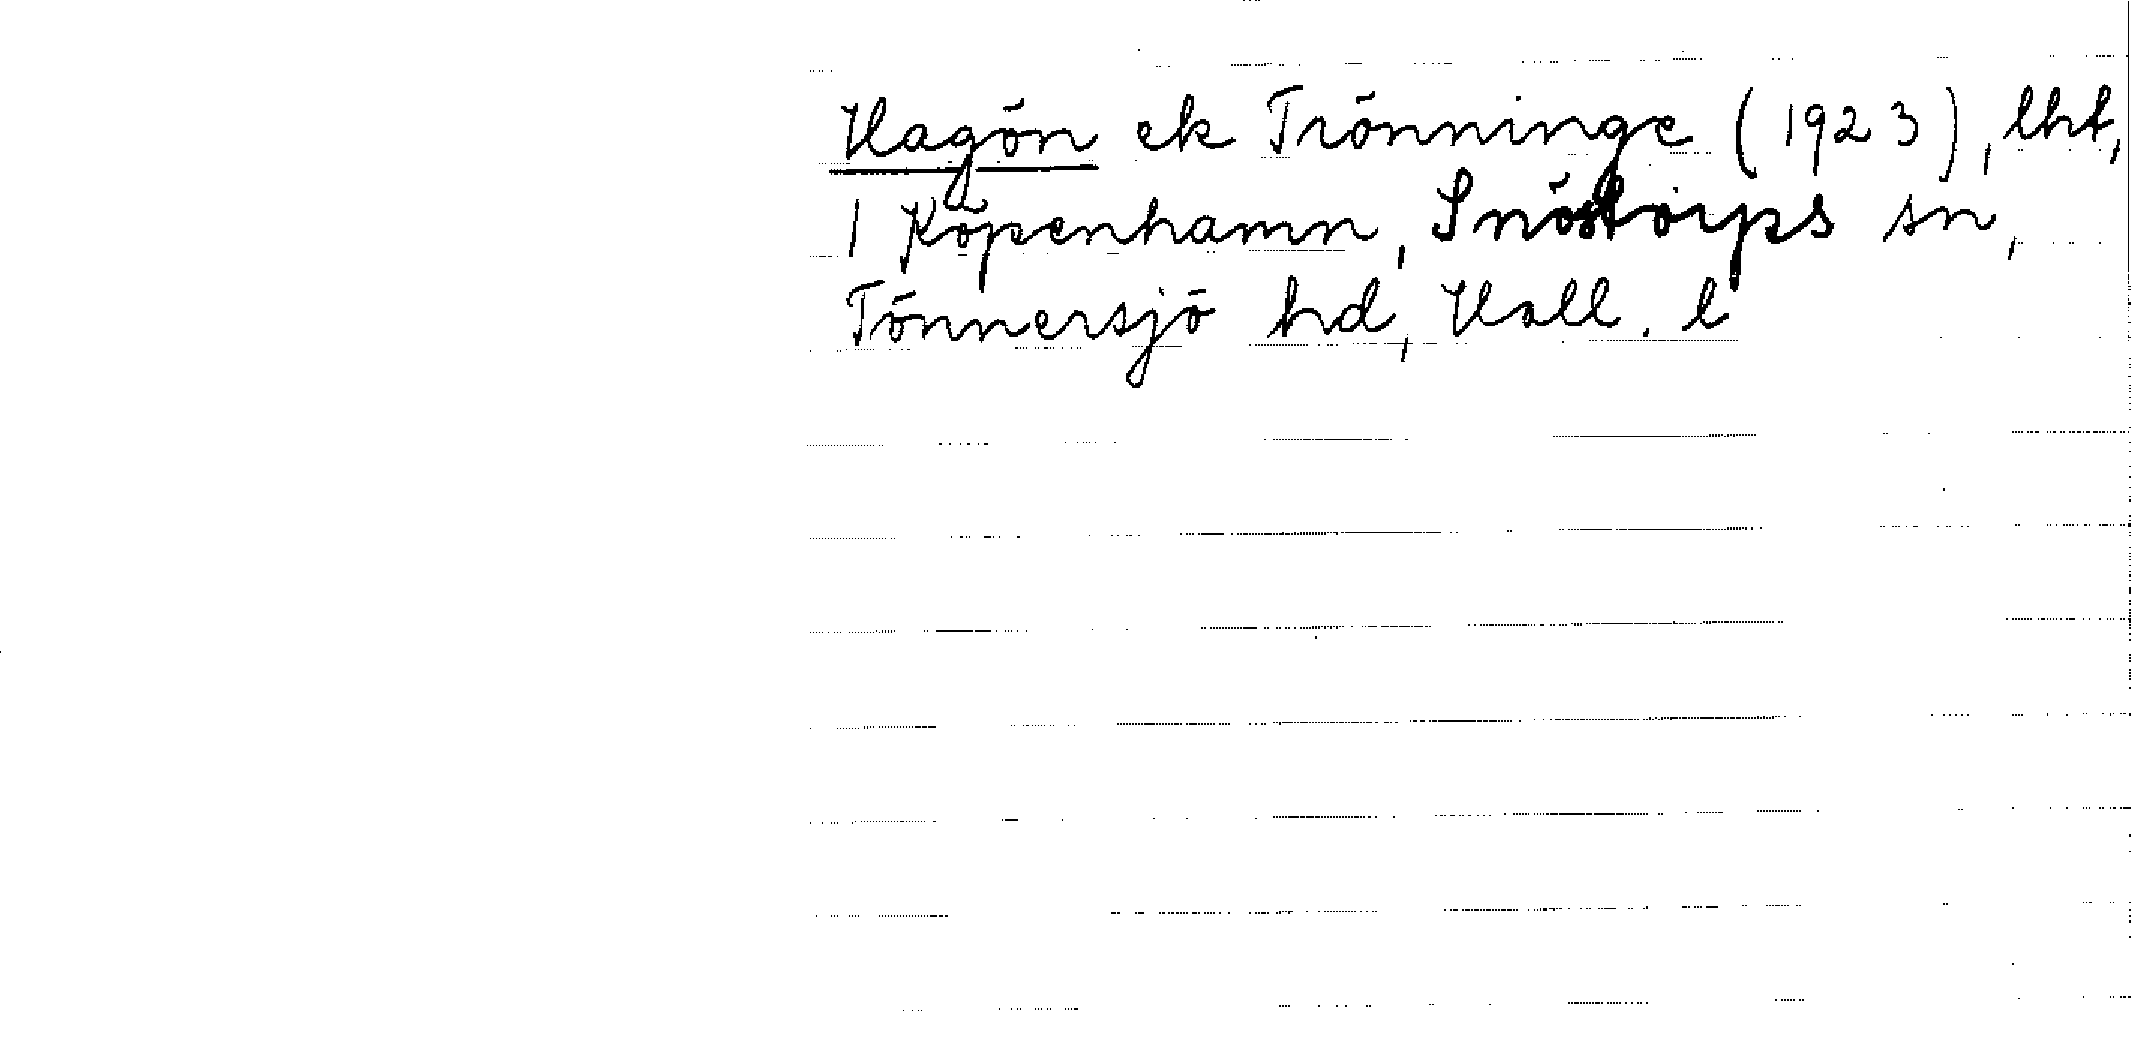 Hagön ek Trönninge (1923), lht,
1 Köpenhamn, Snöstorps sn,
Tönnersjö hd, Hall. l